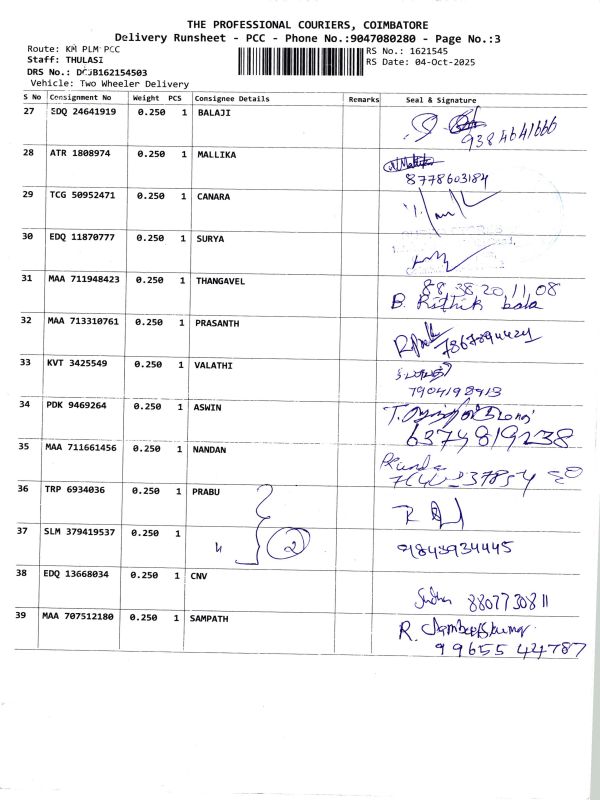 THE PROFESSIONAL COURIERS, COIMBATORE
Delivery Runsheet - PCC - Phone No.:9047080280 - Page No.:3
Route: KM PLM PCC
RS No.: 1621545
Staff: THULASI
RS Date: 04-Oct-2025
DRS No.: DCJB162154503
Vehicle: Two Wheeler Delivery
S No Consignment No Weight PCS Consignee Details Remarks Seal & Signature
27 EDQ 24641919 0.250 1 BALAJI
9384641666
28 ATR 1808974 0.250 1 MALLIKA
8778603184
29 TCG 50952471 0.250 1 CANARA
30 EDQ 11870777 0.250 1 SURYA
31 MAA 711948423 0.250 1 THANGAVEL
88 38 20 11 08
B. Rithik bala
32 MAA 713310761 0.250 1 PRASANTH
7867894424
33 KVT 3425549 0.250 1 VALATHI
7904198913
34 PDK 9469264 0.250 1 ASWIN
6374819238
35 MAA 711661456 0.250 1 NANDAN
36 TRP 6934036 0.250 1 PRABU
37 SLM 379419537 0.250 1 " 2
9843934445
38 EDQ 13668034 0.250 1 CNV
8807730811
39 MAA 707512180 0.250 1 SAMPATH
R.
99655 44787